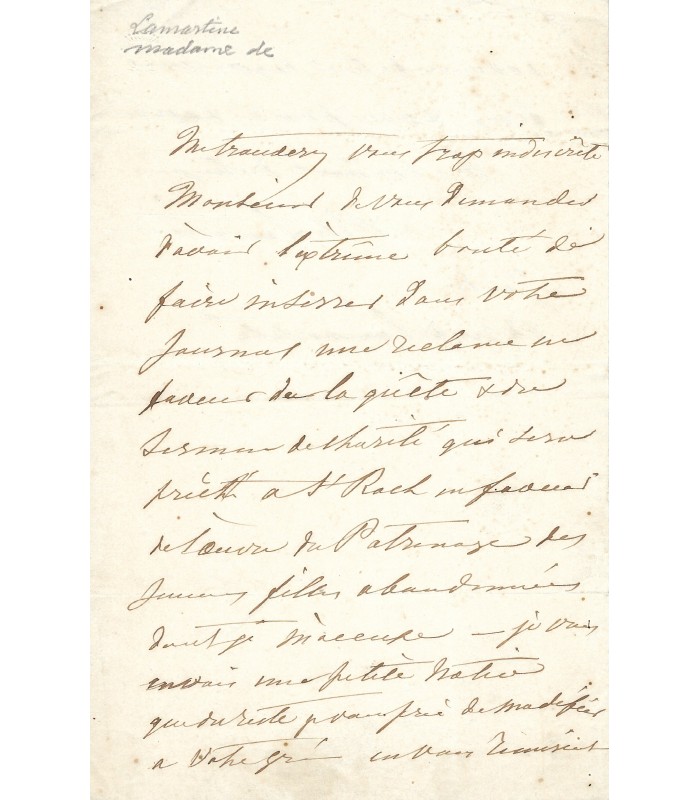 Lamartine
madame de
me trouverez vous trop indiscrète
Monsieur de vous demander
d'avoir l'extrême bonté de
faire insérer dans votre
journal une réclame en
faveur de la quête & du
sermon de charité qui sera
prêché a St Roch en faveur
de l'œuvre du Patronage des
jeunes filles abandonnées
dont je m'occupe – je vous
envois une petite notice
que du reste je vous prie de modifier
a votre gré en vous